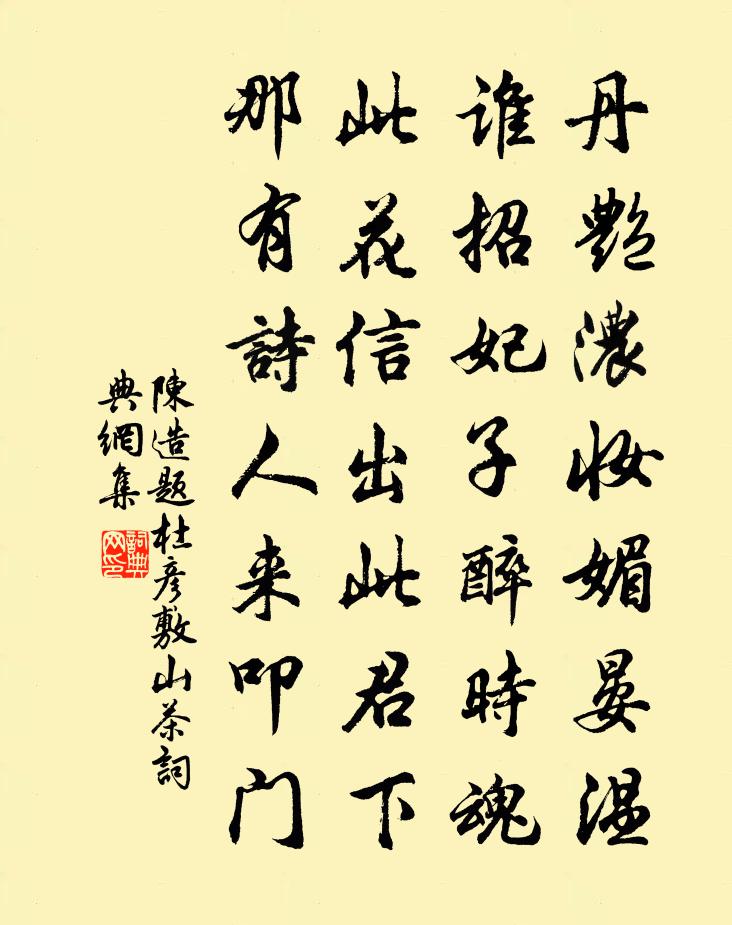 丹艷濃妝媚晏温
谁招妃子醉時魂
此花信出此君下
那有詩人来叩门
陳造题杜彦敷山茶詞
典網集
詞典网印